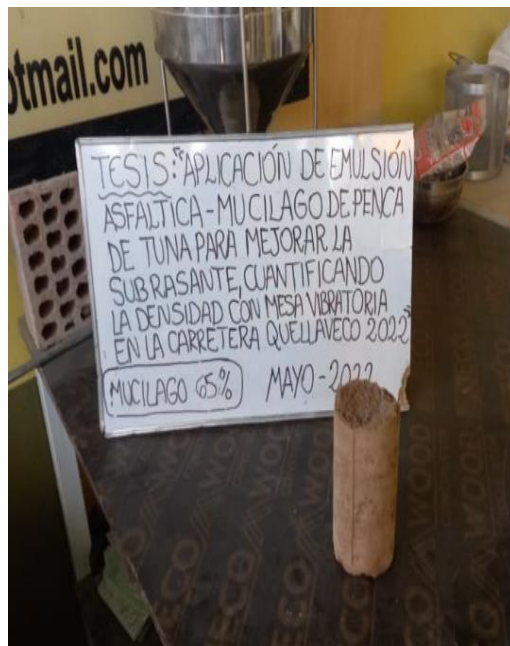 otmail.com
TESIS: "APLICACIÓN DE EMULSIÓN
ASFALTICA - MUCILAGO DE PENCA
DE TUNA PARA MEJORAR LA
SUBRASANTE, CUANTIFICANDO
LA DENSIDAD CON MESA VIBRATORIA
EN LA CARRETERA QUELLAVECO 2022"
MUCILAGO 65% MAYO - 2022
ECO WOOD